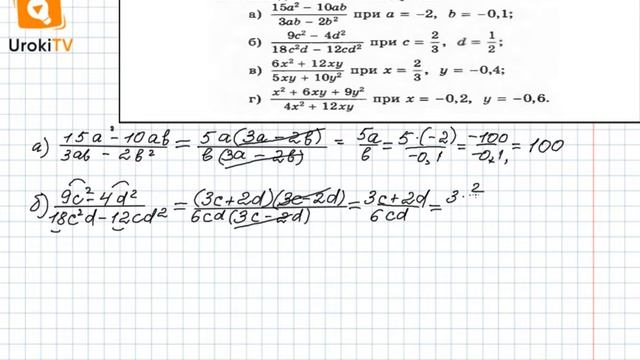 UrokiTV
а) (15a² − 10ab)/(3ab − 2b²) при a = −2, b = −0,1;
б) (9c² − 4d²)/(18c²d − 12cd²) при c = 2/3, d = 1/2;
в) (6x² + 12xy)/(5xy + 10y²) при x = 2/3, y = −0,4;
г) (x² + 6xy + 9y²)/(4x² + 12xy) при x = −0,2, y = −0,6.
а) (15a² − 10ab)/(3ab − 2b²) = 5a(3a − 2b)/b(3a − 2b) = 5a/b = 5·(−2)/−0,1 = −100/−0,1, = 100
б) (9c² − 4d²)/(18c²d − 12cd²) = (3c + 2d)(3c − 2d)/6cd(3c − 2d) = (3c + 2d)/6cd = 3·2